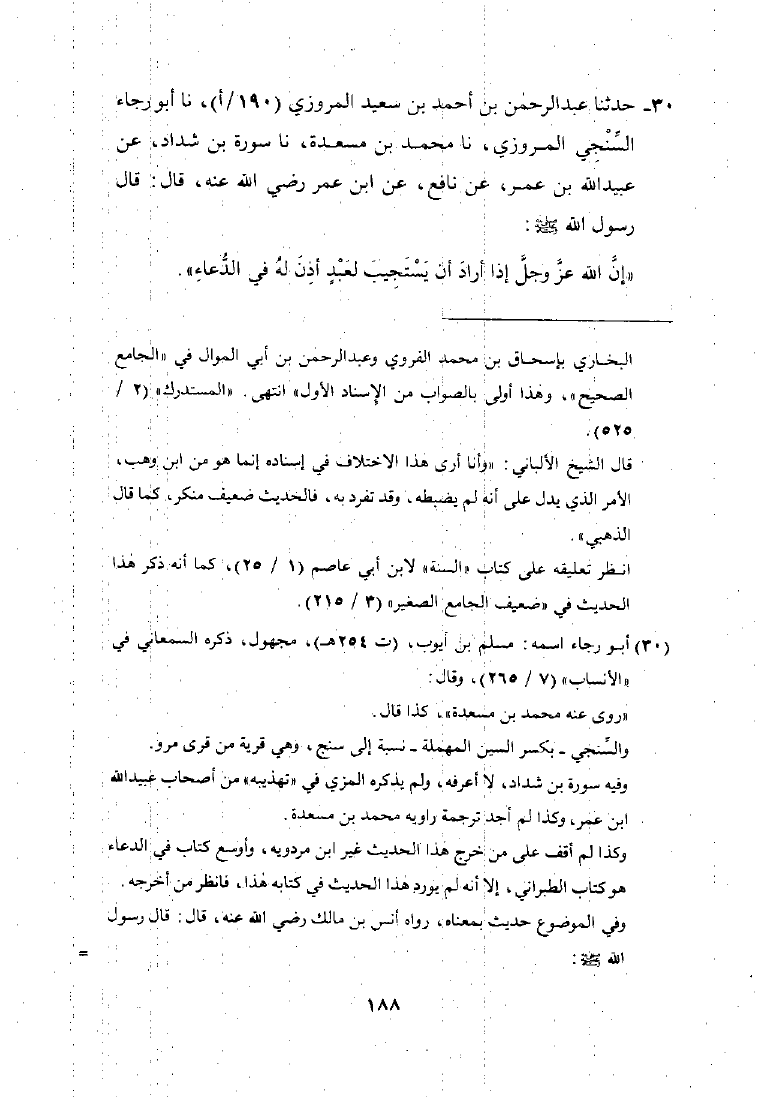 ٣٠ـ حدثنا عبدالرحمن بن أحمد بن سعيد المروزي (١٩٠/أ)، نا أبو رجاء
السِّنْجي المروزي، نا محمد بن مسعدة، نا سورة بن شداد، عن
عبيدالله بن عمر، عن نافع، عن ابن عمر رضي الله عنه، قال: قال
رسول الله ﷺ:
«إنَّ الله عزَّ وجلَّ إذا أرادَ أن يَسْتَجِيبَ لعَبْدٍ أذِنَ لهُ في الدُّعاءِ».
البخاري بإسحاق بن محمد الفروي وعبدالرحمن بن أبي الموال في «الجامع
الصحيح»، وهذا أولى بالصواب من الإسناد الأول» انتهى. «المستدرك» (٢ /
٥٢٥).
قال الشيخ الألباني: «وأنا أرى هذا الاختلاف في إسناده إنما هو من ابن وهب،
الأمر الذي يدل على أنه لم يضبطه، وقد تفرد به، فالحديث ضعيف منكر، كما قال
الذهبي».
انظر تعليقه على كتاب «السنة» لابن أبي عاصم (١ / ٢٥)، كما أنه ذكر هذا
الحديث في «ضعيف الجامع الصغير» (٣ / ٢١٥).
(٣٠) أبو رجاء اسمه: مسلم بن أيوب، (ت ٢٥٤هـ)، مجهول، ذكره السمعاني في
«الأنساب» (٧ / ٢٦٥)، وقال:
«روى عنه محمد بن مسعدة»، كذا قال.
والسِّنجي ـ بكسر السين المهملة ـ نسبة إلى سنج، وهي قرية من قرى مرو.
وفيه سورة بن شداد، لا أعرفه، ولم يذكره المزي في «تهذيبه» من أصحاب عبيدالله
ابن عمر، وكذا لم أجد ترجمة راويه محمد بن مسعدة.
وكذا لم أقف على من خرج هذا الحديث غير ابن مردويه، وأوسع كتاب في الدعاء
هو كتاب الطبراني، إلا أنه لم يورد هذا الحديث في كتابه هذا، فانظر من أخرجه.
وفي الموضوع حديث بمعناه، رواه أنس بن مالك رضي الله عنه، قال: قال رسول
الله ﷺ:
=
١٨٨